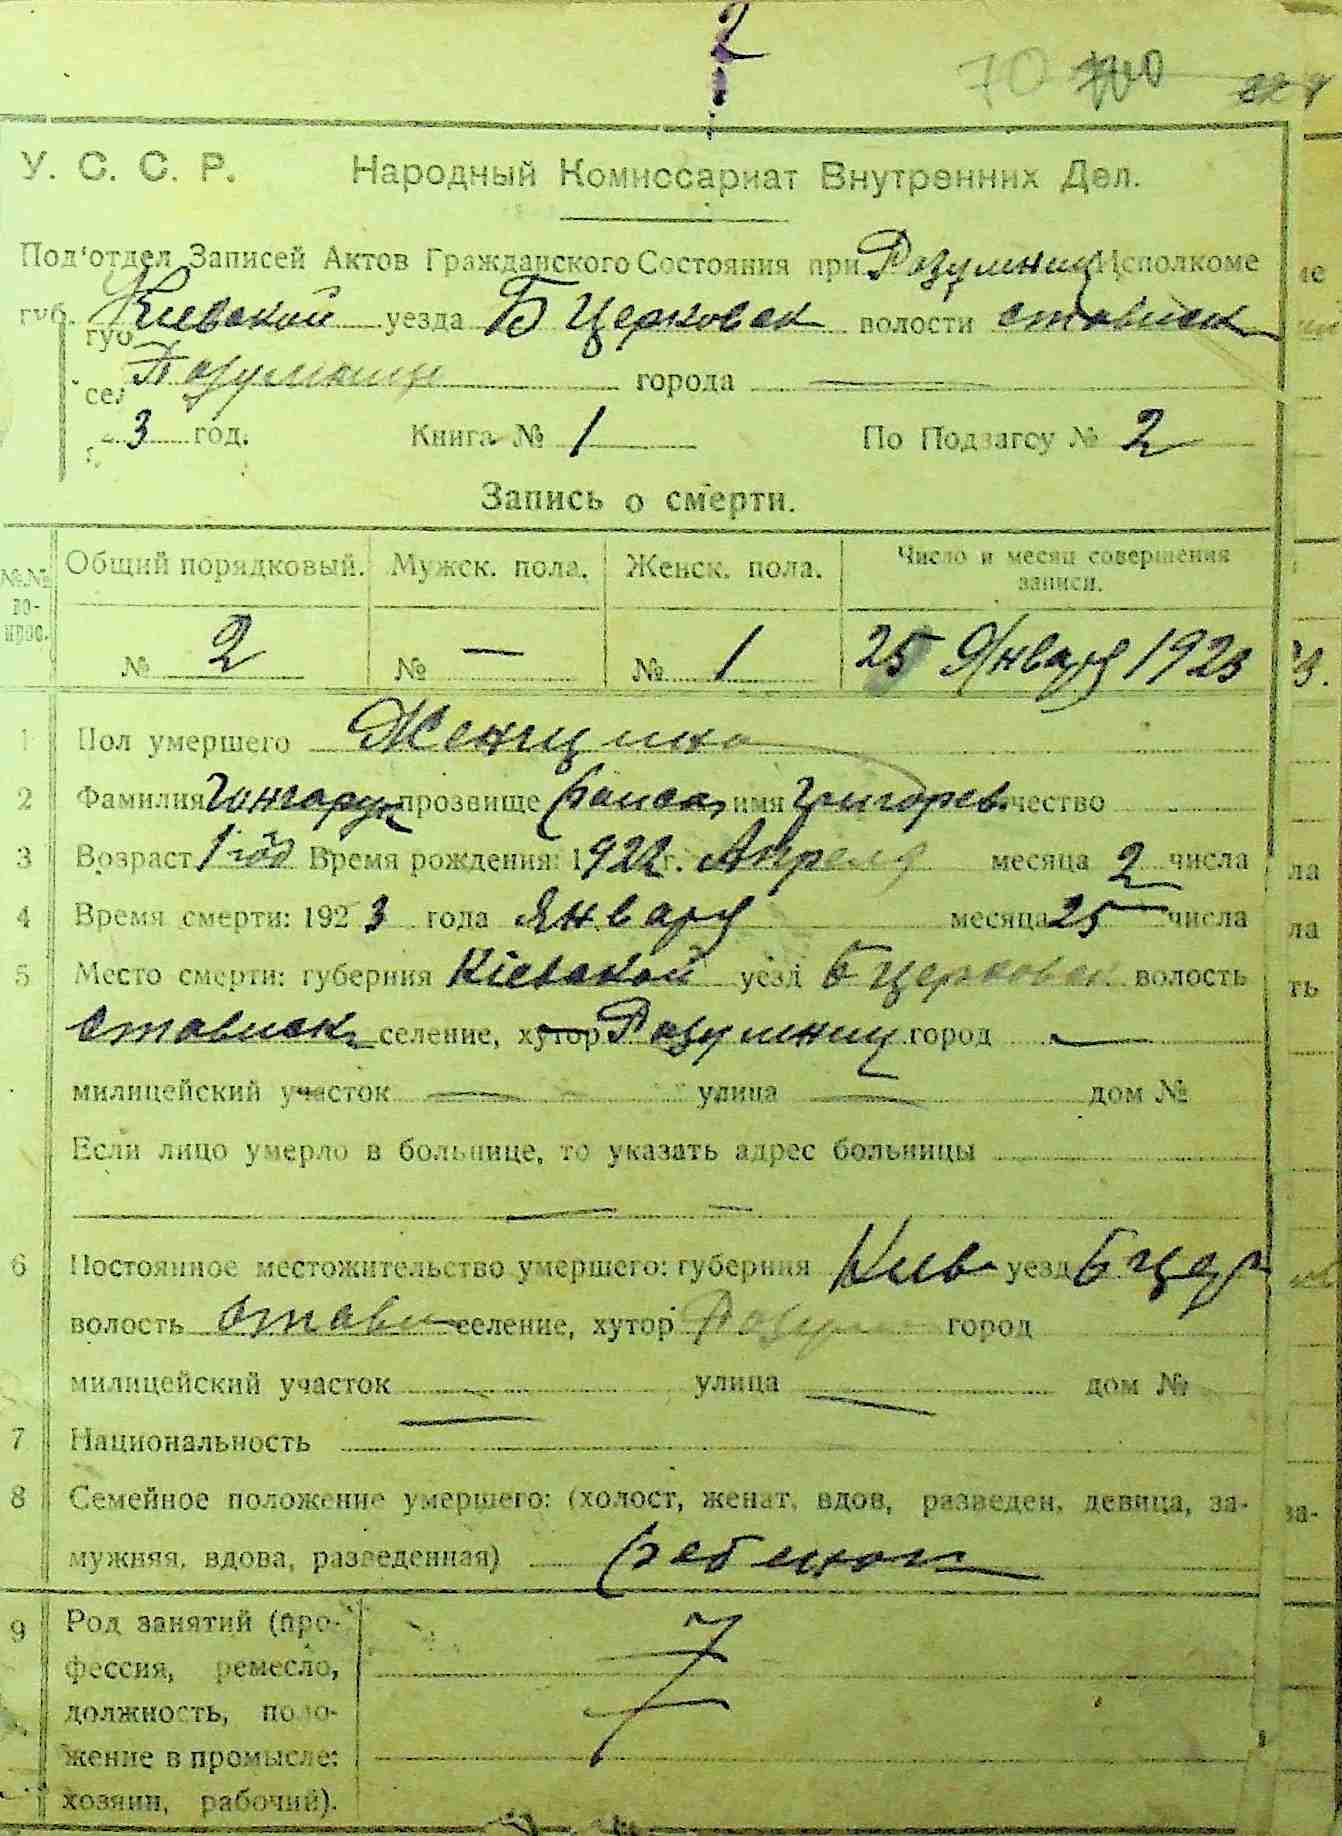 2
70
У. С. С. Р. Народный Комиссариат Внутренних Дел.
Под'отдел Записей Актов Гражданского Состояния при Разумниц Исполкоме
губ. Киевской уезда Б Церковск волости стависк
сел Разумниц города —
3 год. Книга № 1 По Подзагсу № 2
Запись о смерти.
№№ вопрос. Общий порядковый. Мужск. пола. Женск. пола. Число и месяц совершения записи.
№ 2 № — № 1 25 Января 1923
1 Пол умершего Женщина
2 Фамилия Гонгарук прозвище Раиса имя Григорев. чество
3 Возраст 1 год Время рождения: 1922 г. Апреля месяца 2 числа
4 Время смерти: 1923 года Января месяца 25 числа
5 Место смерти: губерния Кіевской уезд Б Церковск волость
стависк селение, хутор Разумниц город —
милицейский участок — улица — дом №
Если лицо умерло в больнице, то указать адрес больницы
— –
6 Постоянное местожительство умершего: губерния Киев уезд Б Цер
волость Стави селение, хутор Разум город
милицейский участок — улица — дом №
7 Национальность
8 Семейное положение умершего: (холост, женат, вдов, разведен, девица, за-
мужняя, вдова, разведенная) ребенок
9 Род занятий (про-
фессия, ремесло,
должность, поло-
жение в промысле:
хозяин, рабочий).